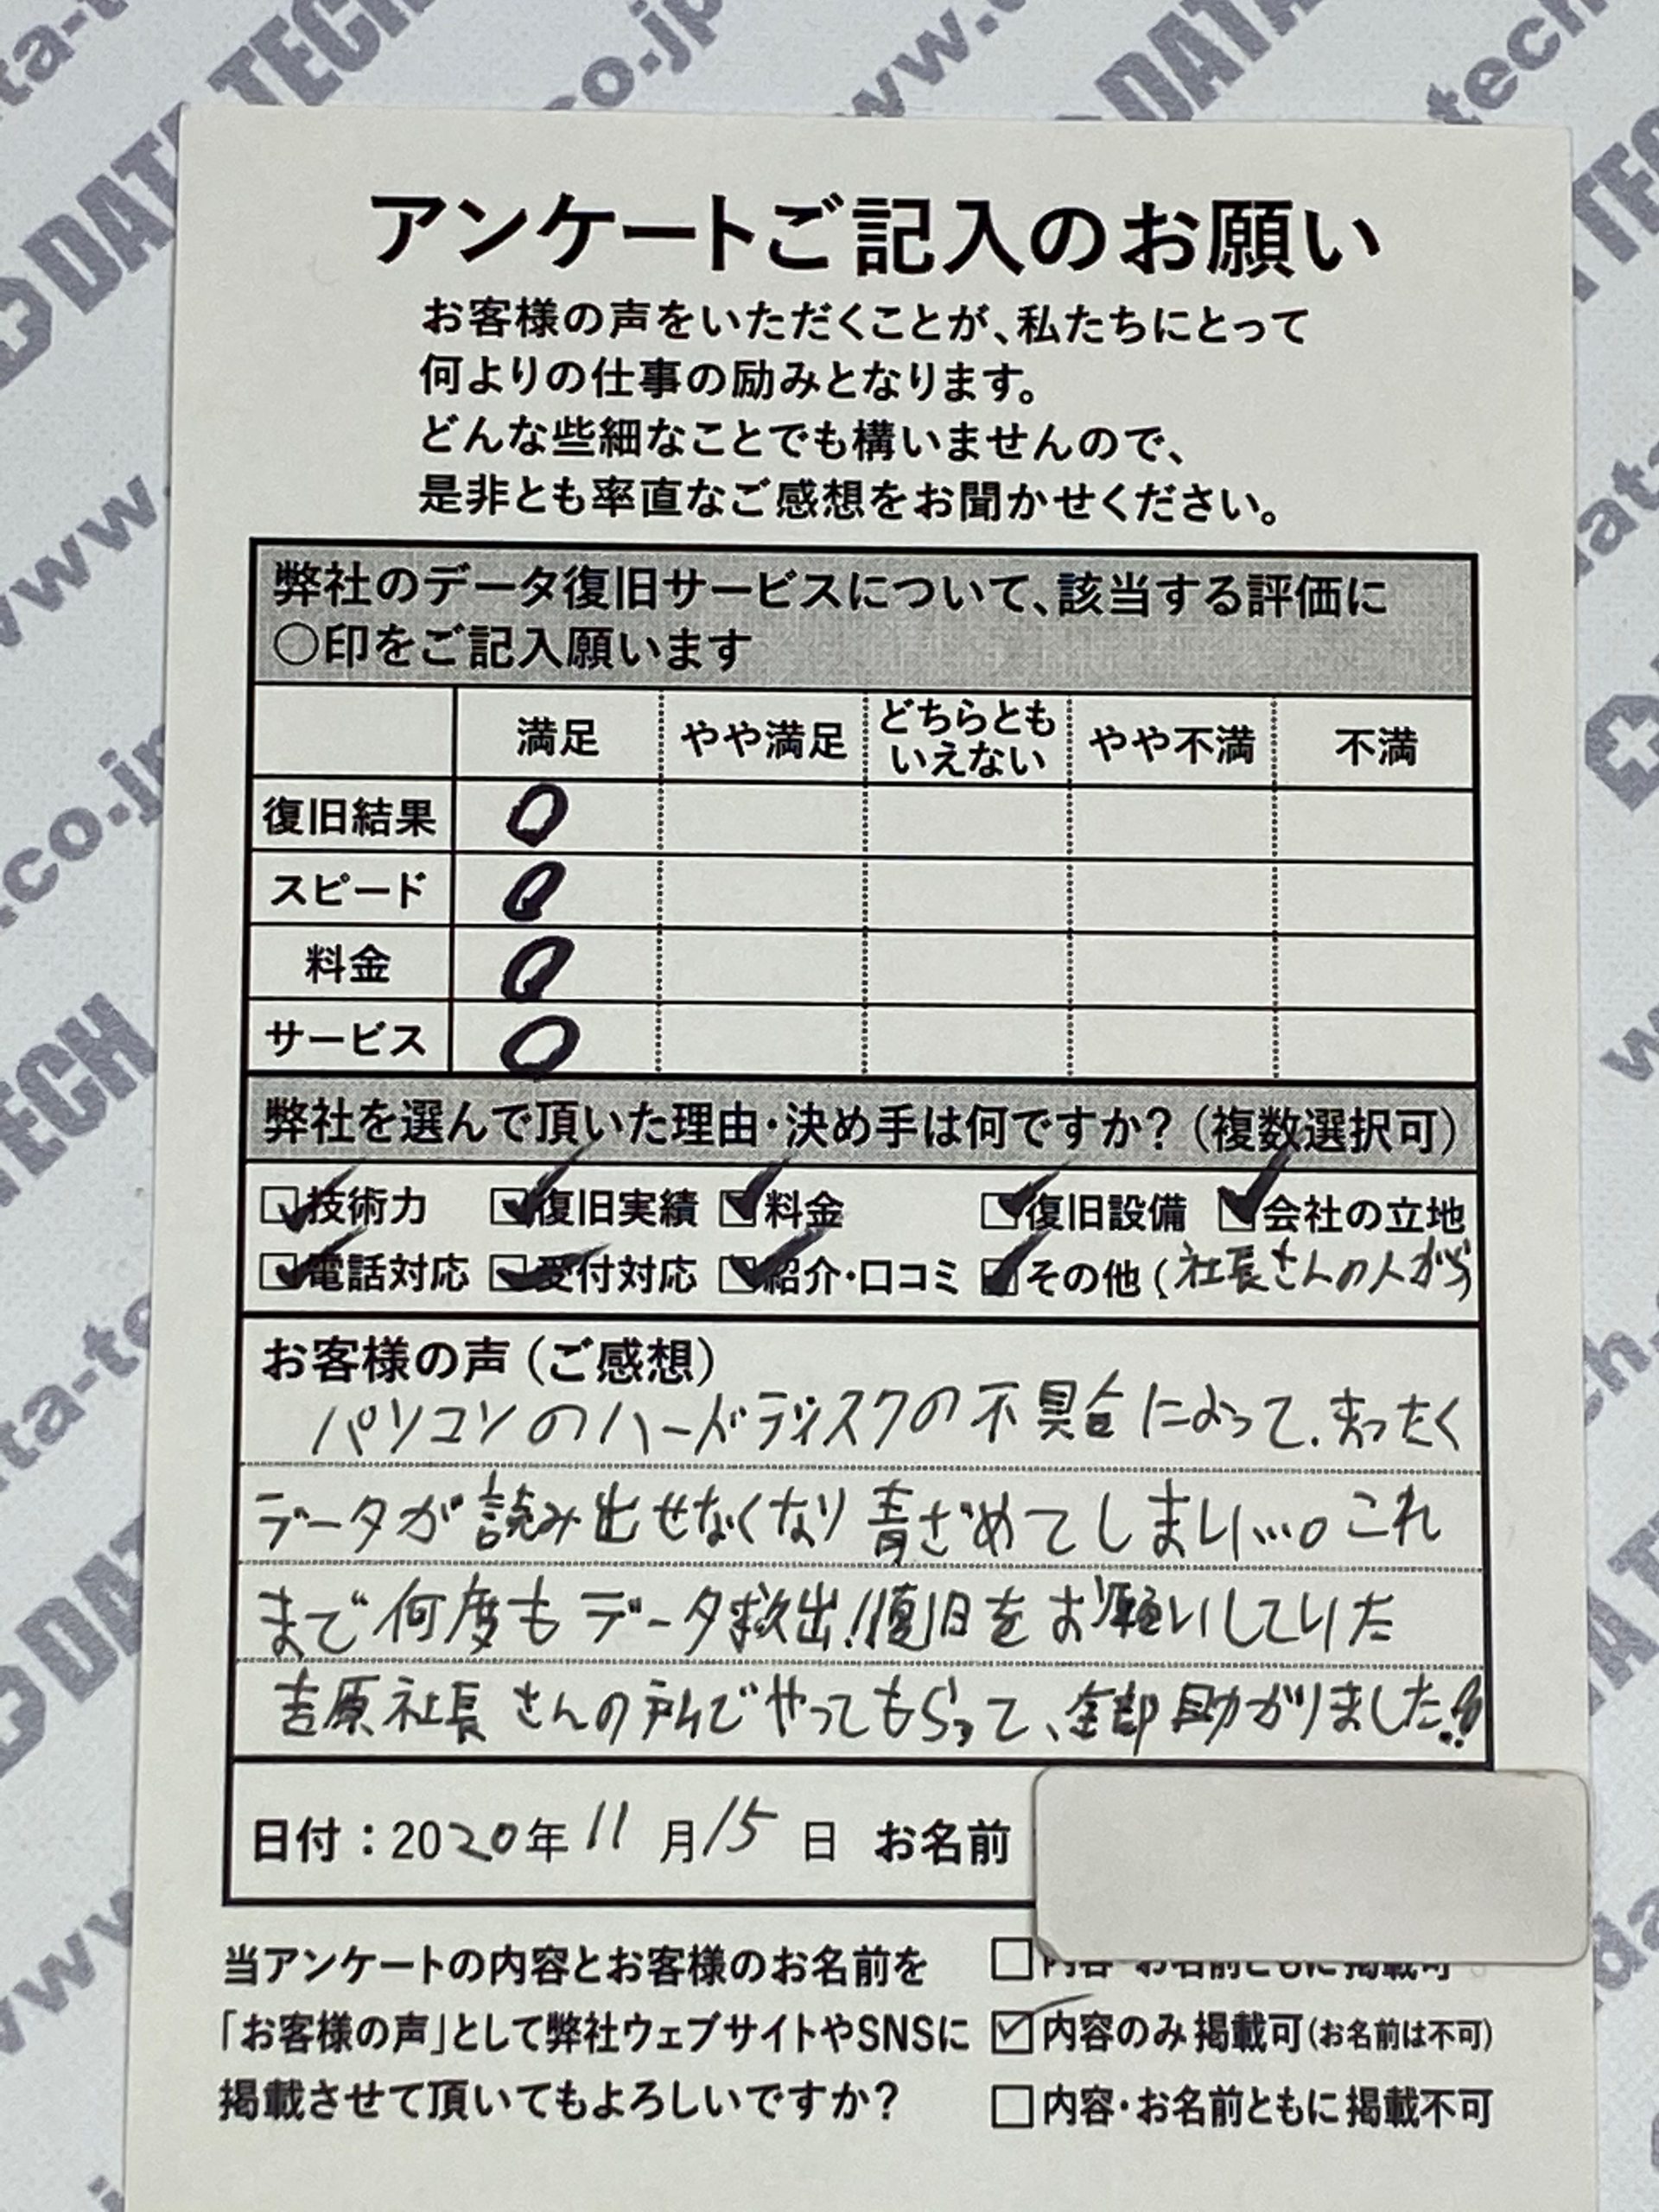 アンケートご記入のお願い
お客様の声をいただくことが、私たちにとって
何よりの仕事の励みとなります。
どんな些細なことでも構いませんので、
是非とも率直なご感想をお聞かせください。
弊社のデータ復旧サービスについて、該当する評価に
○印をご記入願います
満足 やや満足 どちらとも やや不満 不満
いえない
復旧結果 ○
スピード ○
料金 ○
サービス ○
弊社を選んで頂いた理由・決め手は何ですか？（複数選択可）
☑技術力 ☑復旧実績 ☑料金 ☑復旧設備 ☑会社の立地
☑電話対応 ☑受付対応 ☑紹介・口コミ ☑その他（社長さんの人がら）
お客様の声（ご感想）
パソコンのハードディスクの不具合によって、まったく
データが読み出せなくなり青ざめてしまい…。これ
まで何度もデータ救出！復旧をお願いしていた
吉原社長さんの所でやってもらって、全部助かりました!!
日付：2020年11月15日 お名前
当アンケートの内容とお客様のお名前を
「お客様の声」として弊社ウェブサイトやSNSに
掲載させて頂いてもよろしいですか？
□内容・お名前ともに掲載可
☑内容のみ掲載可（お名前は不可）
□内容・お名前ともに掲載不可
DATA TECH
www.data-tech.co.jp